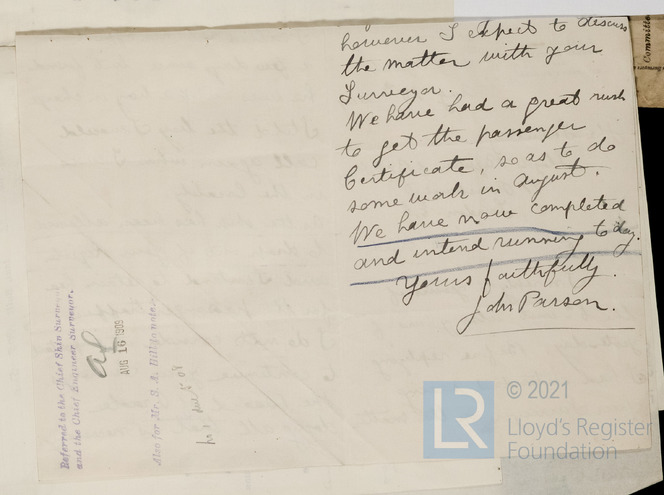 however I expect to discuss
the matter with your
Surveyor.
We have had a great rush
to get the passenger
Certificate, so as to do
some work in August.
We have now completed
and intend running to day.
Yours faithfully.
John Parson.
Referred to the Chief Ship Surveyor
and the Chief Engineer Surveyor.
AUG 16 1909
Also for Mr. S. A. Hill to note.
Committee
LR
© 2021
Lloyd's Register
Foundation